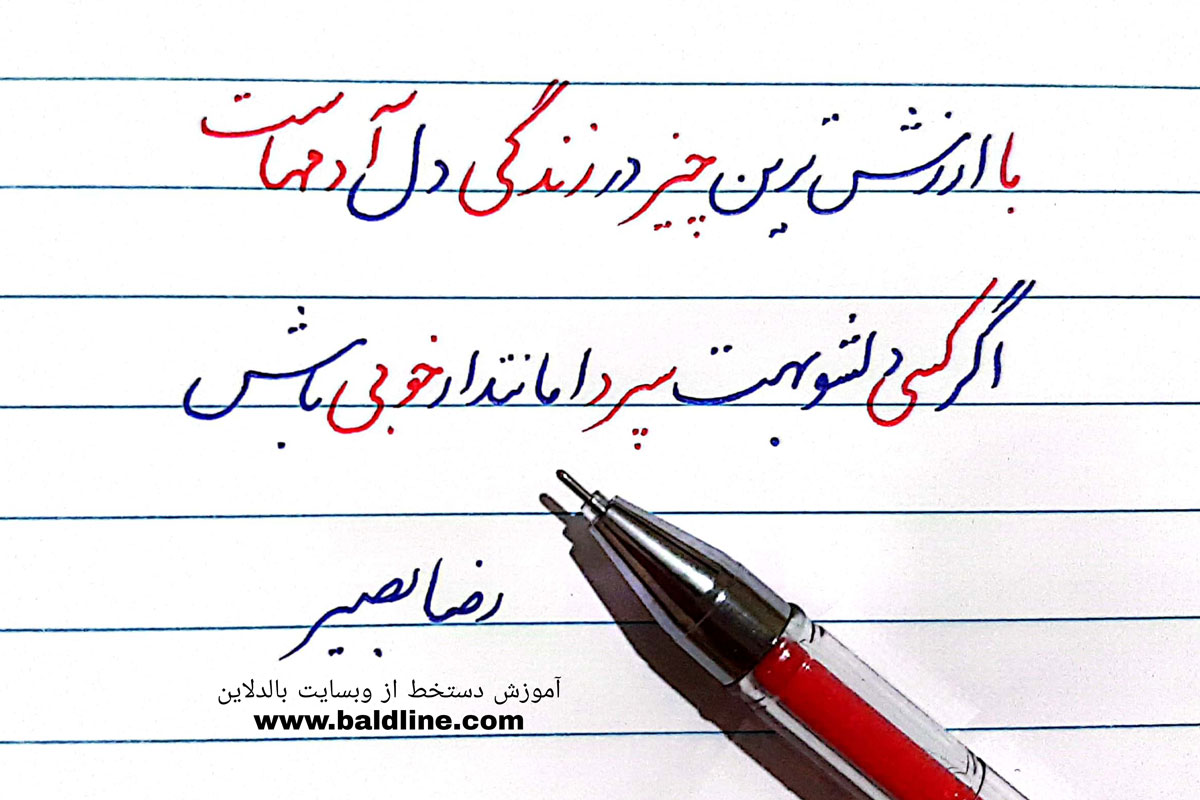 با ارزش ترین چیز در زندگی دل آدمهاست
اگر کسی دلشو بهت سپرد امانتدار خوبی باش
رضا بصیر
آموزش دستخط از وبسایت بالدلاین
www.baldline.com